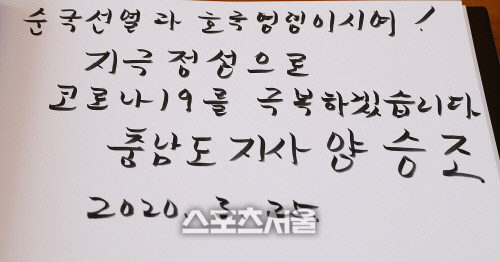 순국선열과 호국영령이시여!
지극정성으로
코로나19를 극복하겠습니다
충남도지사 양승조
2020. 25
스포츠서울